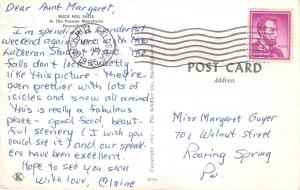 Dear Aunt Margaret,
BUCK HILL FALLS
In The Pocono Mountains
Pennsylvania
I'm spending a wonderful
weekend again here with the
Lutheran Student Assoc. The
falls don't look exactly
like this picture - they're
even prettier with lots of
icicles and snow all around
This is really a fabulous
place - good food, beauti-
ful scenery (I wish you
could see it) and our speak-
ers have been excellent.
Hope to see you soon
With love, Elaine
POST CARD
Address
Miss Margaret Guyer
701 Walnut Street
Roaring Spring
Pa.
4¢